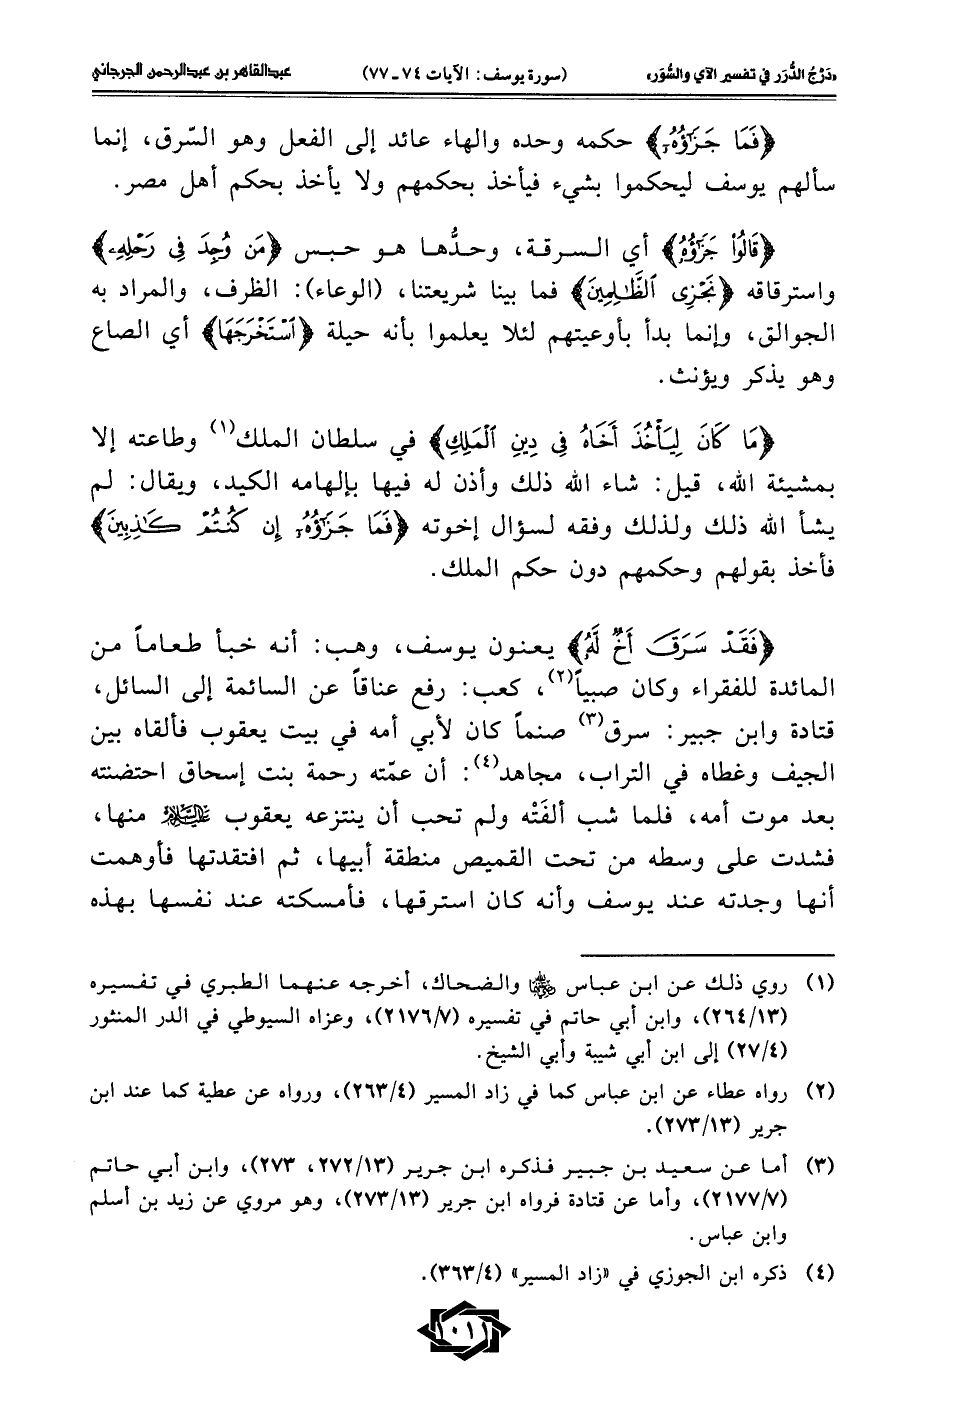 «دَرْجُ الدُّرَر في تفسير الآي والسُّوَر» (سورة يوسف: الآيات ٧٤ـ٧٧) عبدالقاهر بن عبدالرحمن الجرجاني
﴿فَمَا جَزَٰٓؤُهُۥٓ﴾ حكمه وحده والهاء عائد إلى الفعل وهو السّرق، إنما
سألهم يوسف ليحكموا بشيء فيأخذ بحكمهم ولا يأخذ بحكم أهل مصر.
﴿قَالُوا۟ جَزَٰٓؤُهُۥ﴾ أي السرقة، وحدُّها هو حبس ﴿مَن وُجِدَ فِى رَحْلِهِۦ﴾
واسترقاقه ﴿نَجْزِى ٱلظَّٰلِمِينَ﴾ فما بينا شريعتنا، (الوعاء): الظرف، والمراد به
الجوالق، وإنما بدأ بأوعيتهم لئلا يعلموا بأنه حيلة ﴿ٱسْتَخْرَجَهَا﴾ أي الصاع
وهو يذكر ويؤنث.
﴿مَا كَانَ لِيَأْخُذَ أَخَاهُ فِى دِينِ ٱلْمَلِكِ﴾ في سلطان الملك(١) وطاعته إلا
بمشيئة الله، قيل: شاء الله ذلك وأذن له فيها بإلهامه الكيد، ويقال: لم
يشأ الله ذلك ولذلك وفقه لسؤال إخوته ﴿فَمَا جَزَٰٓؤُهُۥٓ إِن كُنتُمْ كَٰذِبِينَ﴾
فأخذ بقولهم وحكمهم دون حكم الملك.
﴿فَقَدْ سَرَقَ أَخٌ لَّهُۥ﴾ يعنون يوسف، وهب: أنه خبأ طعاماً من
المائدة للفقراء وكان صبياً(٢)، كعب: رفع عناقاً عن السائمة إلى السائل،
قتادة وابن جبير: سرق(٣) صنماً كان لأبي أمه في بيت يعقوب فألقاه بين
الجيف وغطاه في التراب، مجاهد(٤): أن عمّته رحمة بنت إسحاق احتضنته
بعد موت أمه، فلما شب ألفَتْه ولم تحب أن ينتزعه يعقوب عليه السلام منها،
فشدت على وسطه من تحت القميص منطقة أبيها، ثم افتقدتها فأوهمت
أنها وجدته عند يوسف وأنه كان استرقها، فأمسكته عند نفسها بهذه
(١) روي ذلك عن ابن عباس رضي الله عنهما والضحاك، أخرجه عنهما الطبري في تفسيره
(٢٦٤/١٣)، وابن أبي حاتم في تفسيره (٢١٧٦/٧)، وعزاه السيوطي في الدر المنثور
(٢٧/٤) إلى ابن أبي شيبة وأبي الشيخ.
(٢) رواه عطاء عن ابن عباس كما في زاد المسير (٢٦٣/٤)، ورواه عن عطية كما عند ابن
جرير (٢٧٣/١٣).
(٣) أما عن سعيد بن جبير فذكره ابن جرير (٢٧٢/١٣، ٢٧٣)، وابن أبي حاتم
(٢١٧٧/٧)، وأما عن قتادة فرواه ابن جرير (٢٧٣/١٣)، وهو مروي عن زيد بن أسلم
وابن عباس.
(٤) ذكره ابن الجوزي في «زاد المسير» (٣٦٣/٤).
١٠١١